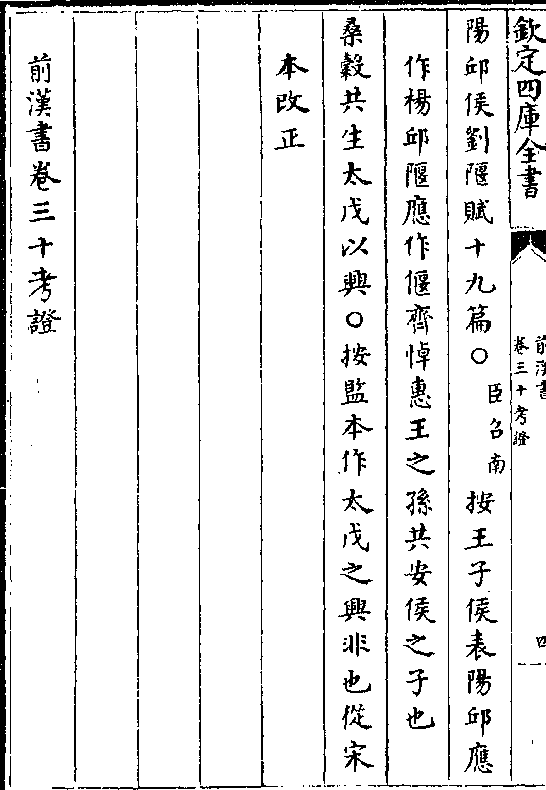 欽定四庫全書
前漢書
卷三十考證
四
陽邱侯劉隁賦十九篇○臣召南按王子侯表陽邱應
作楊邱隁應作偃齊悼惠王之孫共安侯之子也
桑榖共生太戊以興○按監本作太戊之興非也從宋
本改正
前漢書卷三十考證